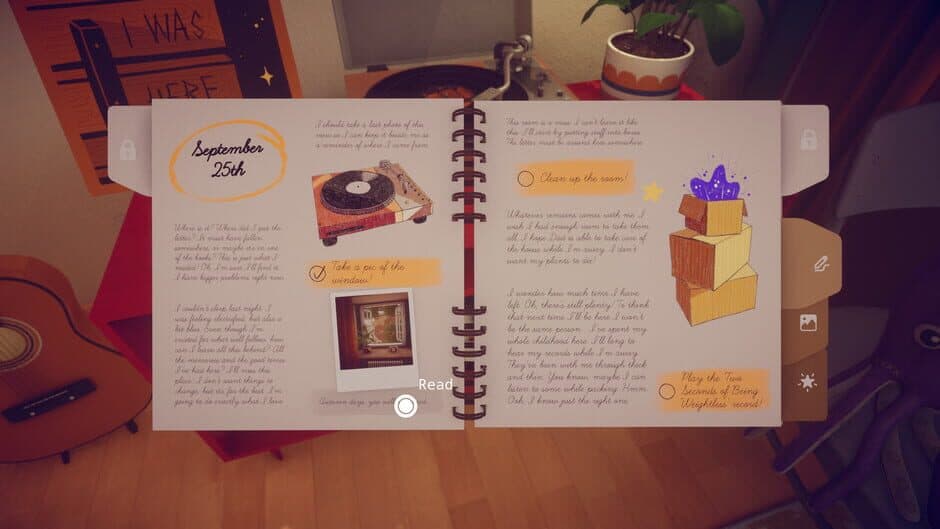 I WAS
HERE
September
25th
Where is it? Where did I put the
letter? It must have fallen
somewhere, or maybe it's in one
of the books? This is just what I
needed! Oh, I'm sure I'll find it.
I have bigger problems right now.
I couldn't sleep last night. I
was feeling electrified, but also a
bit blue. Even though I'm
excited for what will follow, how
can I leave all this behind? All
the memories and the good times
I've had here? I'll miss this
place. I don't want things to
change, but it's for the best. I'm
going to do exactly what I love
I should take a last photo of this
view so I can keep it beside me as
a reminder of where I came from.
Take a pic of the
window!
Read
Autumn days, you
This room is a mess. I can't leave it like
this. I'll start by putting stuff into boxes.
The letter must be around here somewhere.
Clean up the room!
Whatever remains comes with me. I
wish I had enough room to take them
all. I hope Dad is able to take care of
the house while I'm away. I don't
want my plants to die!
I wonder how much time I have
left. Oh, there's still plenty! To think
that next time I'll be here I won't
be the same person... I've spent my
whole childhood here. I'll long to
hear my records while I'm away.
They've been with me through thick
and thin. You know, maybe I can
listen to some while packing. Hmm...
Ooh, I know just the right one.
Play the 'Two
Seconds of Being
Weightless' record!